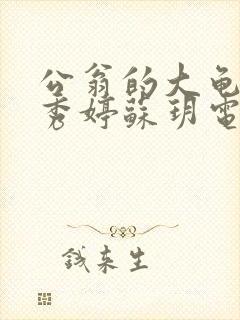 公翁的大龟
秀婷蘇玥電
钱来生